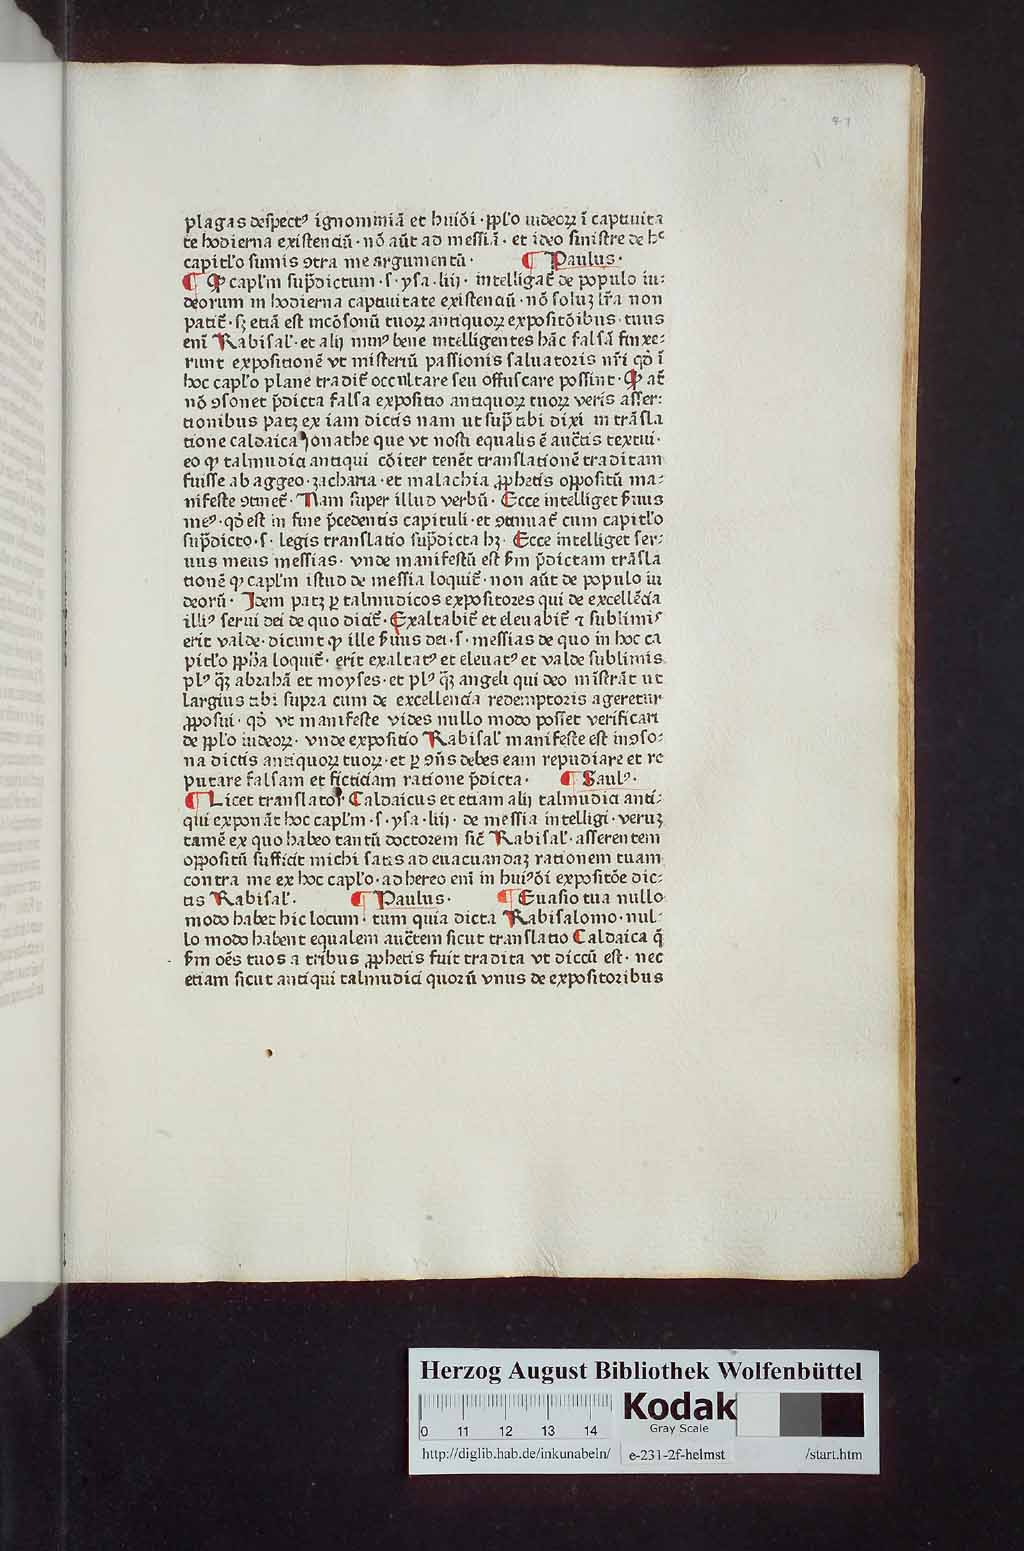 plagas despectꝰ ignominiā et huiōi · ppl'o iudeoꝝ ī captiuita
te hodierna existenciū · nō aūt ad messiā · et ideo sinistre de hᶜ
capitl'o sumis ꝯtra me argumentū · ¶ Paulus ·
¶ Ꝙ capl'm sup̄dictum · s · ysa · liij · intelligat̄ de populo iu:
deorum in hodierna captiuitate existenciū · nō soluꝫ lr̄a non
patit̄ · sꝫ etiā est incōsonū tuoꝝ antiquoꝝ expositōibus · tuus
enī Rabisal' · et alij minꝰ bene intelligentes hāc falsā finxe:
runt expositionē vt misteriū passionis saluatoris nr̄i qd̄ ī
hoc capl'o plane tradit̄ occultare seu offuscare possint · Ꝙ at̄
nō ꝯsonet p̄dicta falsa expositio antiquoꝝ tuoꝝ veris asser:
tionibus patꝫ ex iam dictis nam ut sup̄ tibi dixi in trāsla
tione caldaica Jonathe que vt nosti equalis ē auct̄is textui ·
eo ꝙ talmudici antiqui cōiter tenēt translationē traditam
fuisse ab aggeo · zacharia · et malachia ꝓphetis oppositū ma:
nifeste ꝯtinet̄ · Nam super illud verbū · Ecce intelliget s̄uus
meꝰ · qd̄ est in fine p̄cedentis capituli · et ꝯtinuat̄ cum capitl'o
sup̄dicto · s · legis translatio sup̄dicta hꝫ · Ecce intelliget ser:
uus meus messias · vnde manifestū est s̄m p̄dictam trāsla
tionē ꝙ capl'm istud de messia loquit̄ · non aūt de populo iu
deorū · Idem patꝫ ꝑ talmudicos expositores qui de excellēcia
illiꝰ serui dei de quo dicit̄ · Exaltabit̄ et eleuabit̄ ⁊ sublimis
erit valde · dicunt ꝙ ille s̄uus dei · s · messias de quo in hoc ca
pitl'o ꝓpha loquit̄ · erit exaltatꝰ et eleuatꝰ et valde sublimis
plꝰ q̄ꝫ abrahā et moyses · et plꝰ q̄ꝫ angeli qui deo mistrāt ut
largius tibi supra cum de excellencia redemptoris ageretur
ꝓposui · qd̄ vt manifeste vides nullo modo posset verificari
de ppl'o iudeoꝝ · vnde expositio Rabisal' manifeste est inꝯso:
na dictis antiquoꝝ tuoꝝ · et ꝑ ꝯn̄s debes eam repudiare et re
putare falsam et ficticiam ratione p̄dicta · ¶ Saulꝰ ·
¶ Licet translator Caldaicus et etiam alij talmudici anti:
qui exponāt hoc capl'm · s · ysa · liij · de messia intelligi · veruꝫ
tamē ex quo habeo tantū doctorem sic̄ Rabisal' · asserentem
oppositū sufficit michi satis ad euacuandaꝫ rationem tuam
contra me ex hoc capl'o · adhereo enī in huiꝰōi expositōe dic:
tis Rabisal' · ¶ Paulus · ¶ Euasio tua nullo
modo habet hic locum · tum quia dicta Rabisalomo · nul:
lo modo habent equalem auct̄em sicut translatio Caldaica q̄
s̄m oēs tuos a tribus ꝓphetis fuit tradita vt dictū est · nec
etiam sicut antiqui talmudici quorū vnus de expositoribus
Herzog August Bibliothek Wolfenbüttel
0 11 12 13 14
Kodak
Gray Scale
http://diglib.hab.de/inkunabeln/ e-231-2f-helmst /start.htm